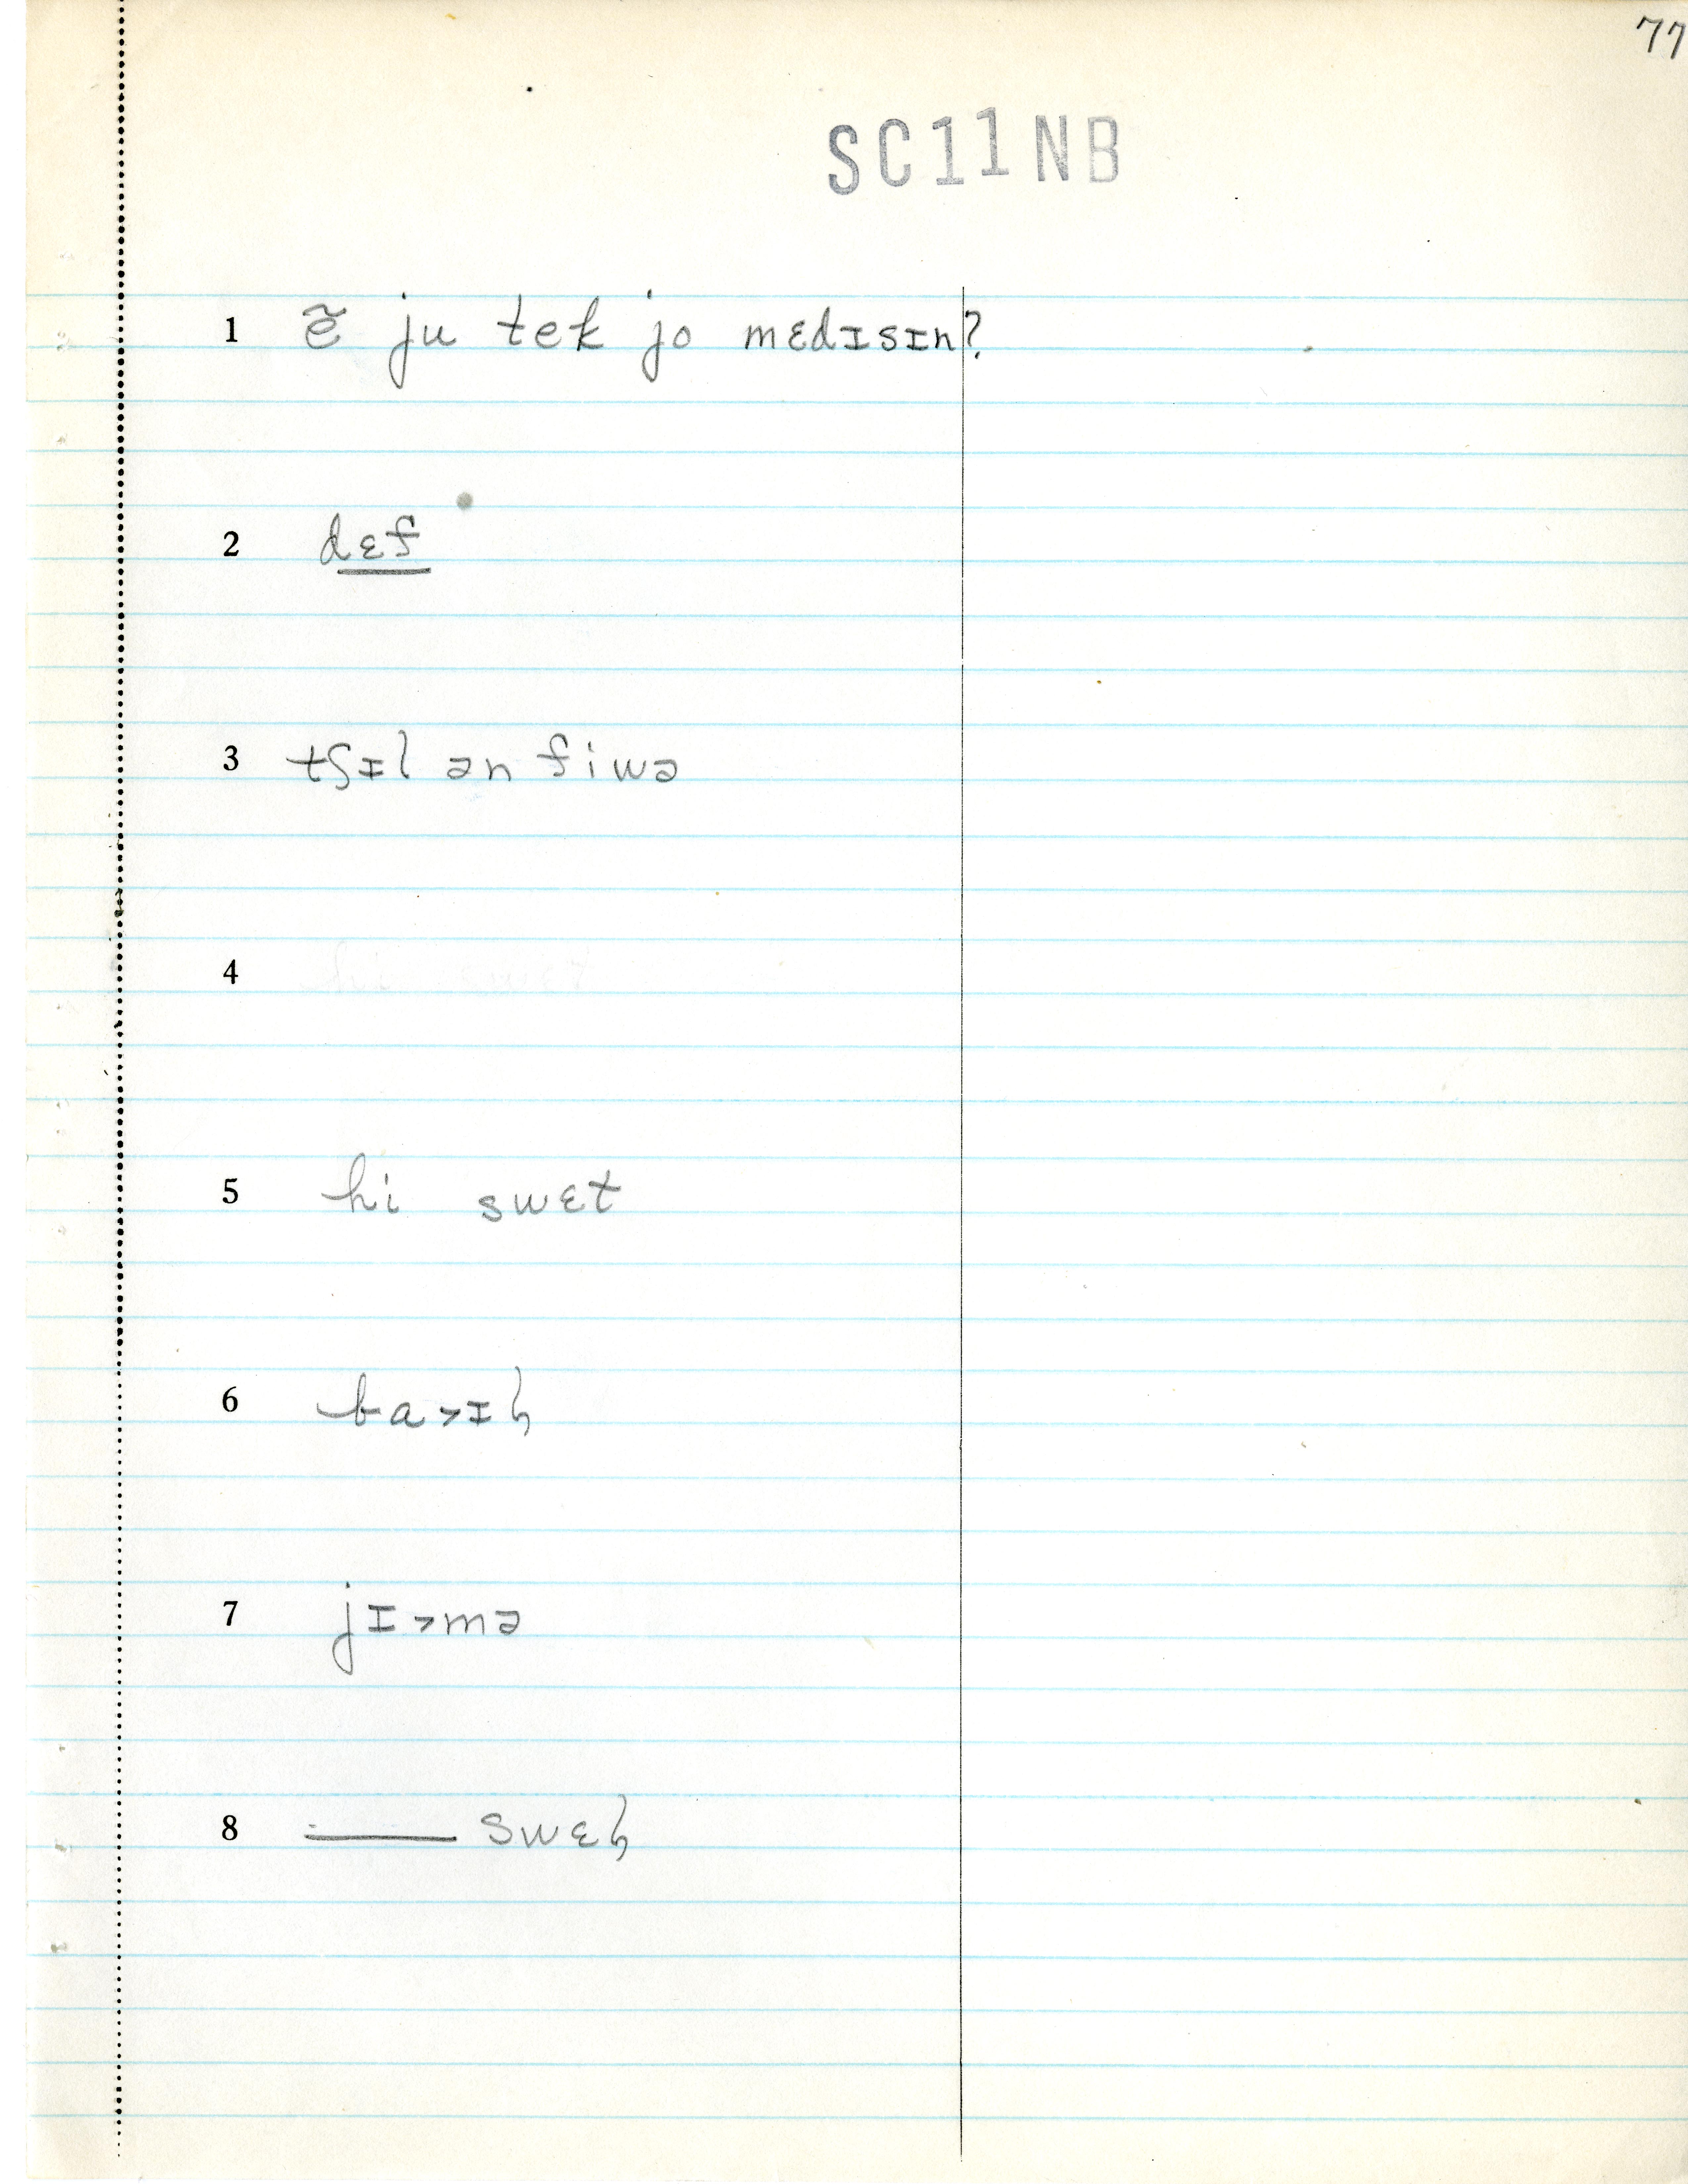 77
SC11NB
1 ẽ ju tek jo mɛdɪsɪn?
2 dɛf
3 tʃɪl ən fiwə
4
5 hi swɛt
6 ba>ɪɦ
7 jɪ>mə
8 ——— swɛɦ